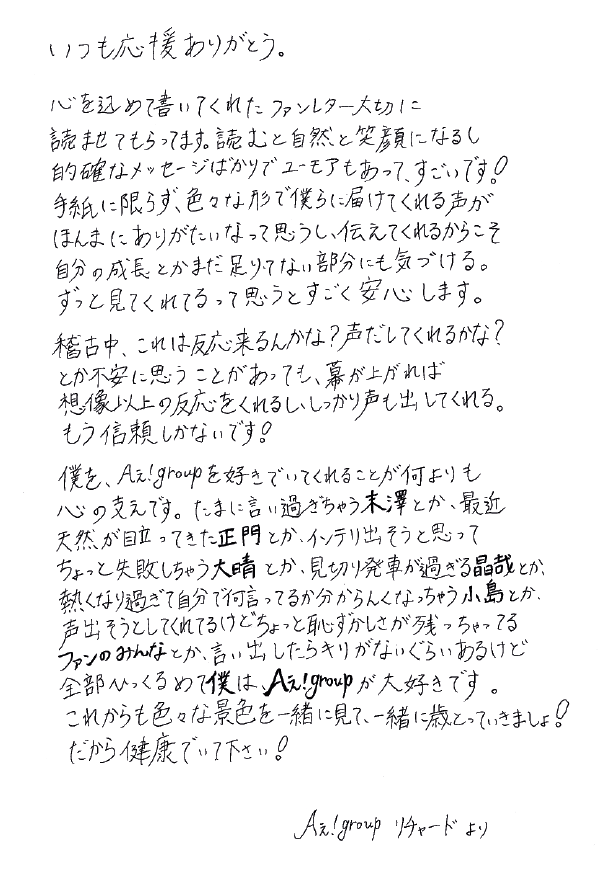 いつも応援ありがとう。
心を込めて書いてくれたファンレター大切に
読ませてもらってます。読むと自然と笑顔になるし
的確なメッセージばかりでユーモアもあって、すごいです!
手紙に限らず、色々な形で僕らに届けてくれる声が
ほんまにありがたいなって思うし、伝えてくれるからこそ
自分の成長とかまだ足りてない部分にも気づける。
ずっと見てくれてるって思うとすごく安心します。
稽古中、これは反応来るんかな?声だしてくれるかな?
とか不安に思うことがあっても、幕が上がれば
想像以上の反応をくれるし、しっかり声も出してくれる。
もう信頼しかないです!
僕を、Aぇ!groupを好きでいてくれることが何よりも
心の支えです。たまに言い過ぎちゃう末澤とか、最近
天然が目立ってきた正門とか、インテリ出そうと思って
ちょっと失敗しちゃう大晴とか、見切り発車が過ぎる晶哉とか、
熱くなり過ぎて自分で何言ってるか分からんくなっちゃう小島とか、
声出そうとしてくれてるけどちょっと恥ずかしさが残っちゃってる
ファンのみんなとか、言い出したらキリがないぐらいあるけど
全部ひっくるめて僕は、Aぇ!groupが大好きです。
これからも色々な景色を一緒に見て、一緒に歳とっていきましょ!
だから健康でいて下さい!
Aぇ!group リチャードより